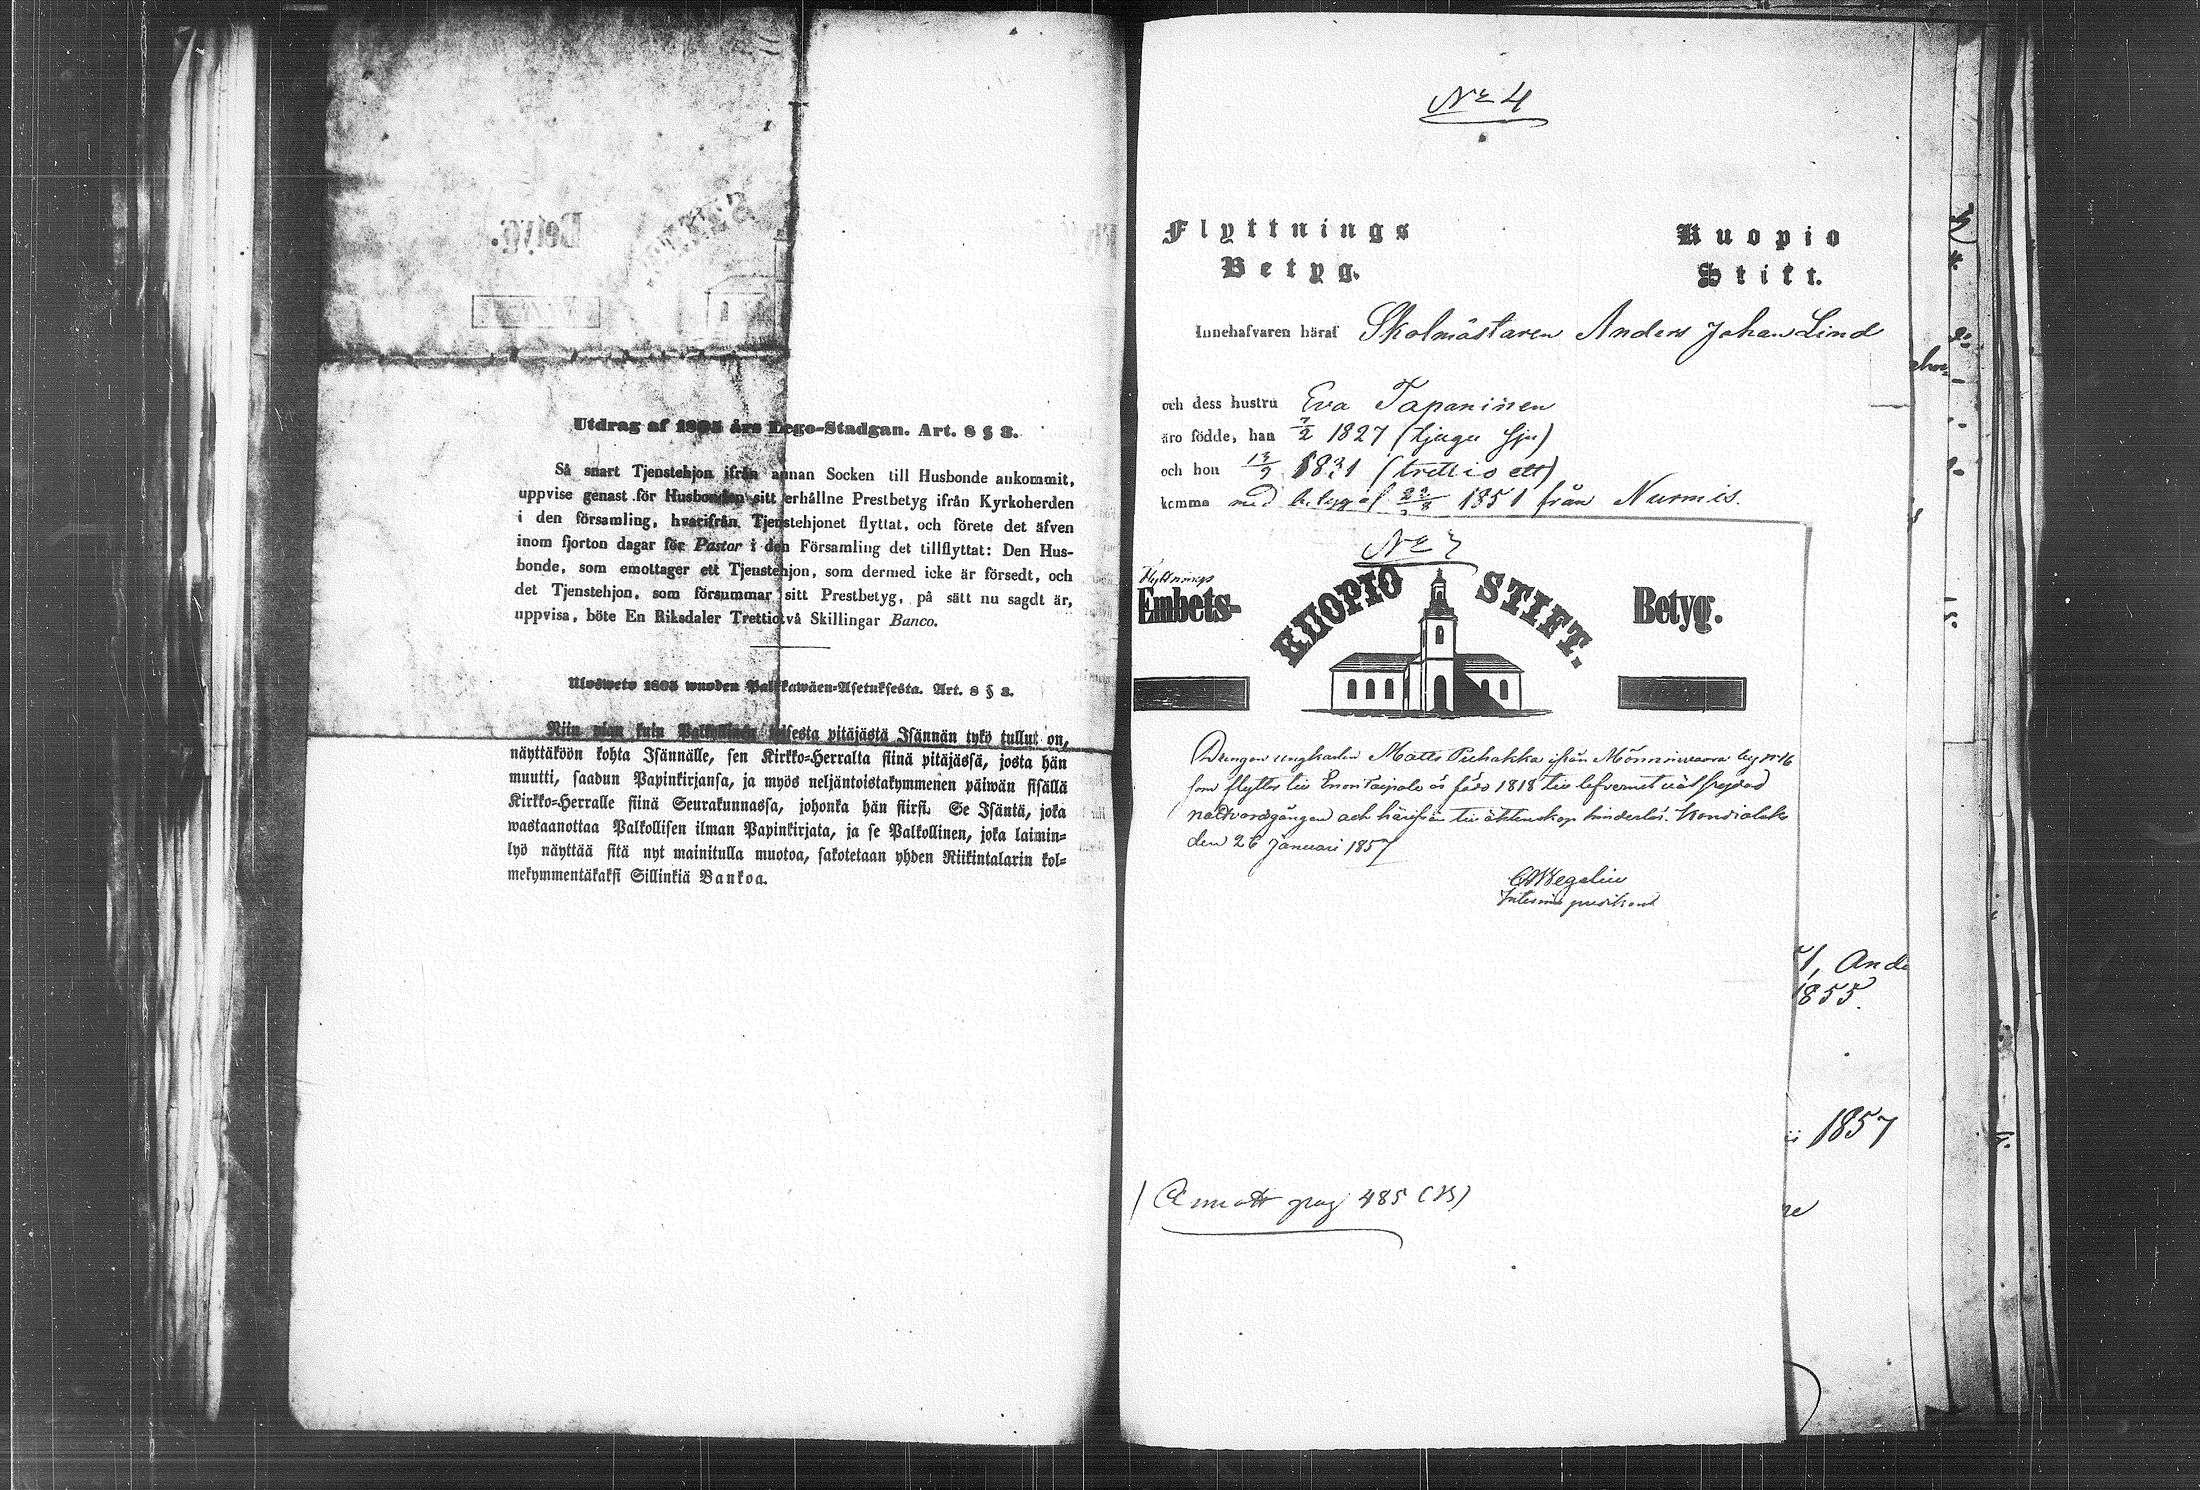 Utdrag af 1805 års Lego-Stadgan. Art. 8 § 3.
Så snart Tjenstehjon ifrån annan Socken till Husbonde ankommit,
uppvise genast för Husbonden sitt erhållne Prestbetyg ifrån Kyrkoherden
i den församling, hvarifrån Tjenstehjonet flyttat, och förete det äfven
inom fjorton dagar för Pastor i den Församling det tillflyttat: Den Hus-
bonde, som emottager ett Tjenstehjon, som dermed icke är försedt, och
det Tjenstehjon, som försummar sitt Prestbetyg, på sätt nu sagdt är,
uppvisa, böte En Riksdaler Trettiotvå Skillingar Banco.
Ulosweto 1805 wuoden Palkkawäen-Asetuksesta. Art. 8 § 3.
Niin pian kuin Palkollinen toisesta pitäjästä Isännän tykö tullut on,
näyttäköön kohta Isännälle, sen Kirkko-Herralta siinä pitäjässä, josta hän
muutti, saadun Papinkirjansa, ja myös neljäntoistakymmenen päiwän sisällä
Kirkko-Herralle siinä Seurakunnassa, johonka hän siirsi. Se Isäntä, joka
wastaanottaa Palkollisen ilman Papinkirjata, ja se Palkollinen, joka laimin-
lyö näyttää sitä nyt mainitulla muotoa, sakotetaan yhden Riikintalarin kol-
mekymmentäkaksi Sillinkiä Bankoa.
No 4
Flyttnings Kuopio
Betyg. Stift.
Innehafvaren häraf Skolmästaren Anders Johan Lind
och dess hustru Eva Tapaninen
äro födde, han 7/2 1827 (tjugu sju)
och hon 13/2 1831 (trettio ett)
komma med betyg af 1851 från Nurmis.
No 3
Flyttnings
Embets- KUOPIO STIFT. Betyg.
Drengen ungkarlen Matts Puhakka ifrån Mönninwaara by No 16
som flyttar till Enontaipale är född 1818 till lefvernet väl frejdad
nattvardgången och härifrån till äktenskap hinderlös. Kondiolaks
den 26 Januari 1857
Wegelius
Interims predikant
Anmält pag 485 (B)
1, And
1855.
1857